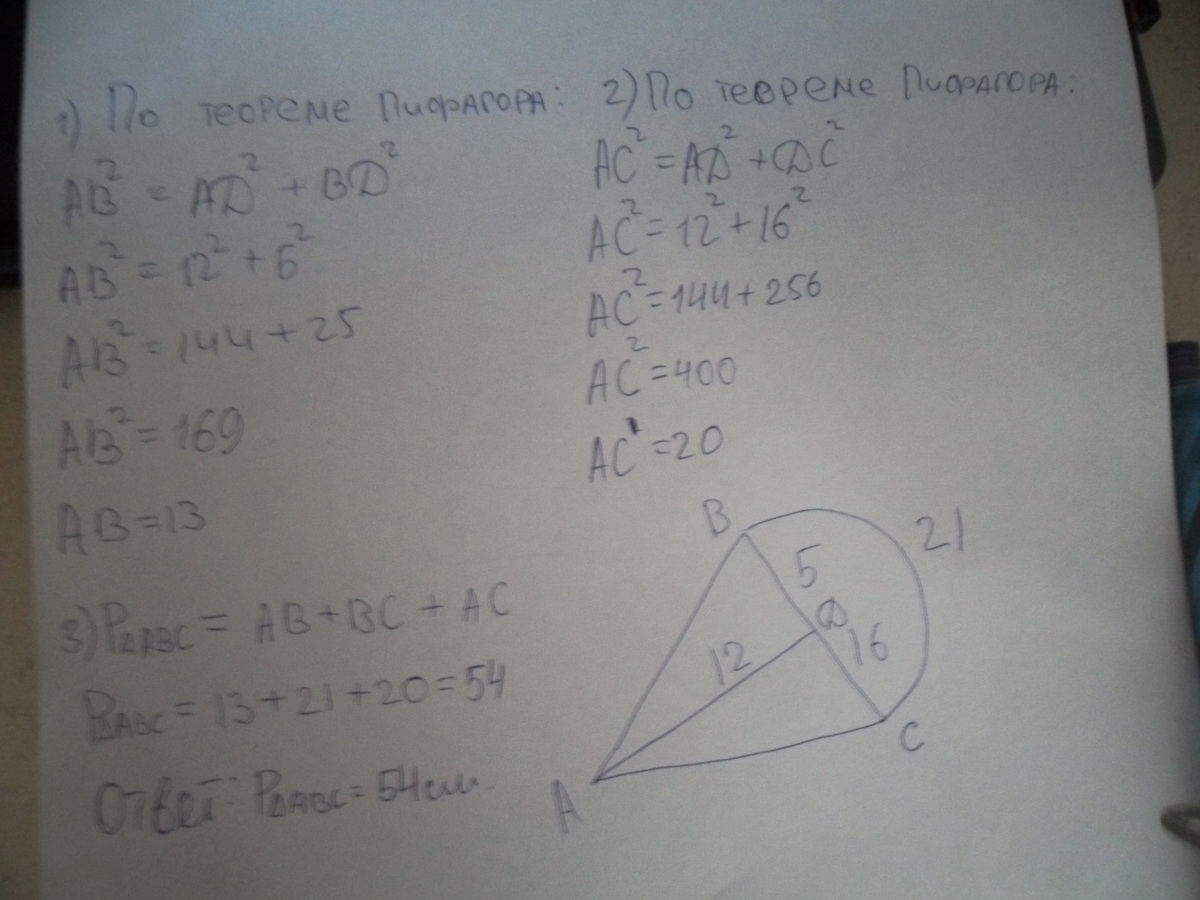 1) По теореме Пифагора:
AB² = AD² + BD²
AB² = 12² + 5²
AB² = 144 + 25
AB² = 169
AB = 13
2) По теореме Пифагора:
AC² = AD² + DC²
AC² = 12² + 16²
AC² = 144 + 256
AC² = 400
AC = 20
3) P△ABC = AB + BC + AC
P△ABC = 13 + 21 + 20 = 54
Ответ: P△ABC = 54см.
B
21
5
D
12
16
C
A